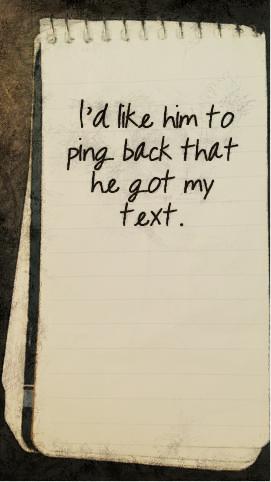 I'd like him to
ping back that
he got my
text.